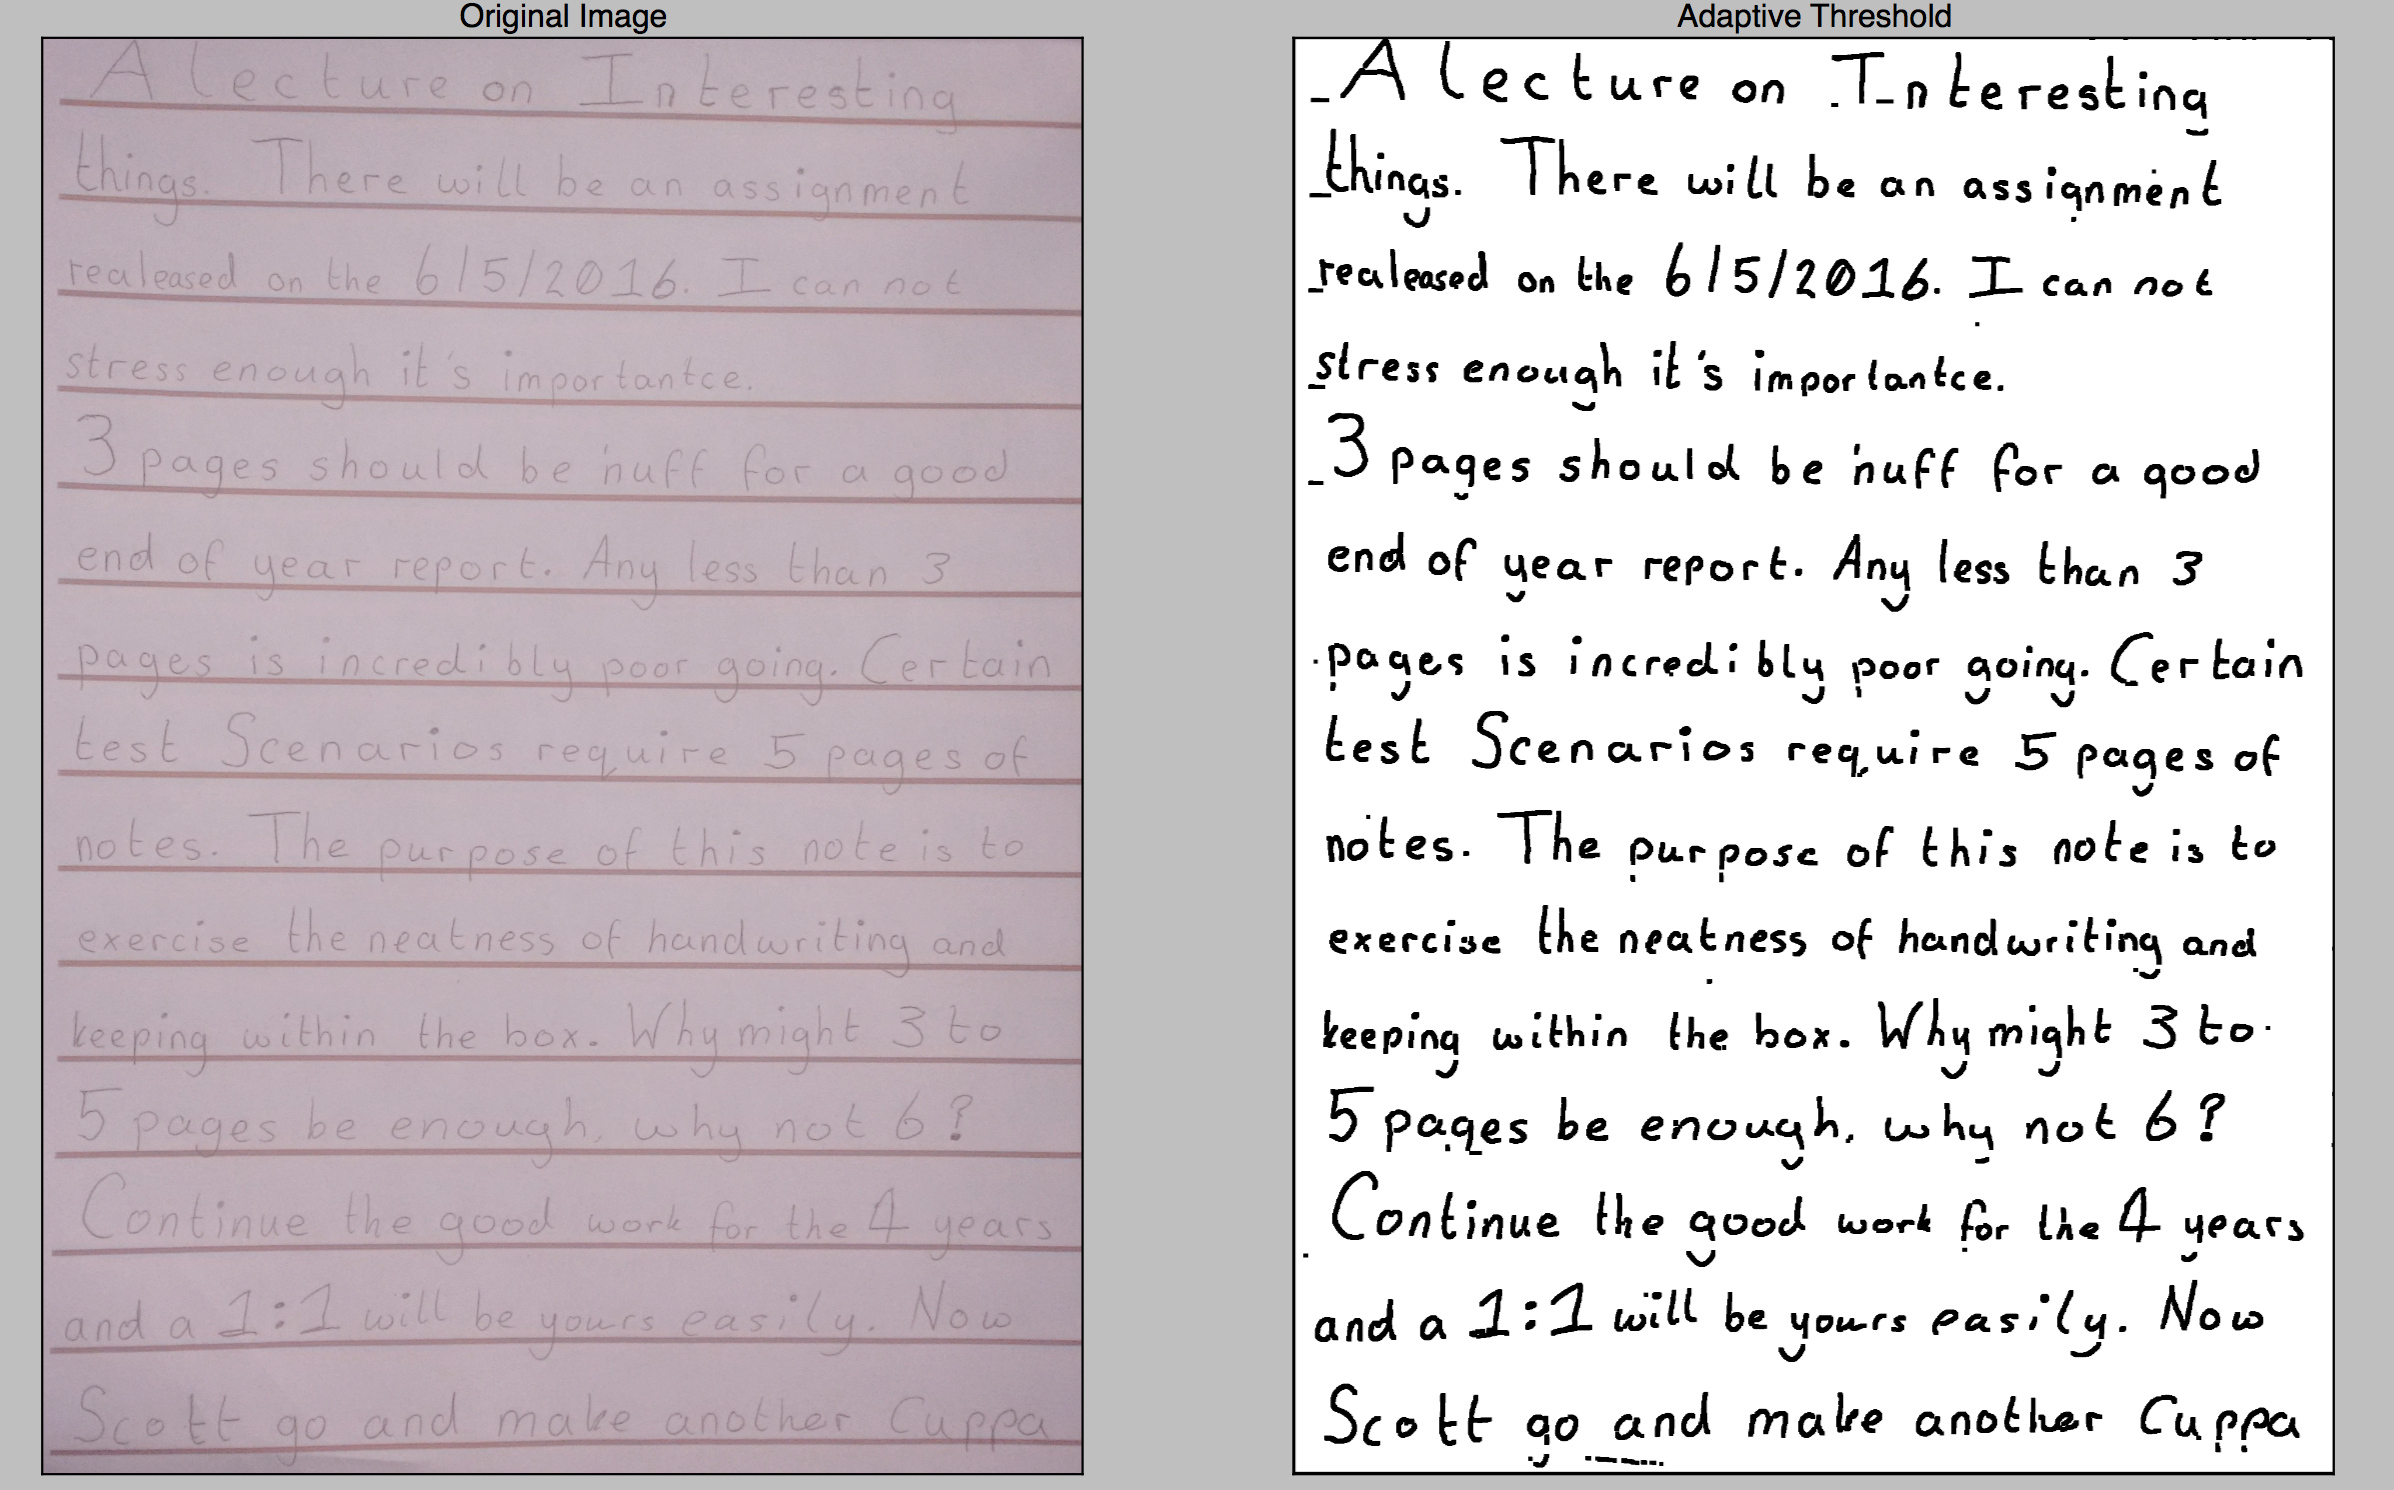 Original Image
A lecture on Interesting
things. There will be an assignment
realeased on the 6/5/2016. I can not
stress enough it's importantce.
3 pages should be 'nuff for a good
end of year report. Any less than 3
pages is incredibly poor going. Certain
test Scenarios require 5 pages of
notes. The purpose of this note is to
exercise the neatness of handwriting and
keeping within the box. Why might 3 to
5 pages be enough, why not 6?
Continue the good work for the 4 years
and a 1:1 will be yours easily. Now
Scott go and make another Cuppa
Adaptive Threshold
A lecture on Interesting
things. There will be an assignment
realeased on the 6/5/2016. I can not
stress enough it's importantce.
3 pages should be 'nuff for a good
end of year report. Any less than 3
pages is incredibly poor going. Certain
test Scenarios require 5 pages of
notes. The purpose of this note is to
exercise the neatness of handwriting and
keeping within the box. Why might 3 to
5 pages be enough, why not 6?
Continue the good work for the 4 years
and a 1:1 will be yours easily. Now
Scott go and make another Cuppa